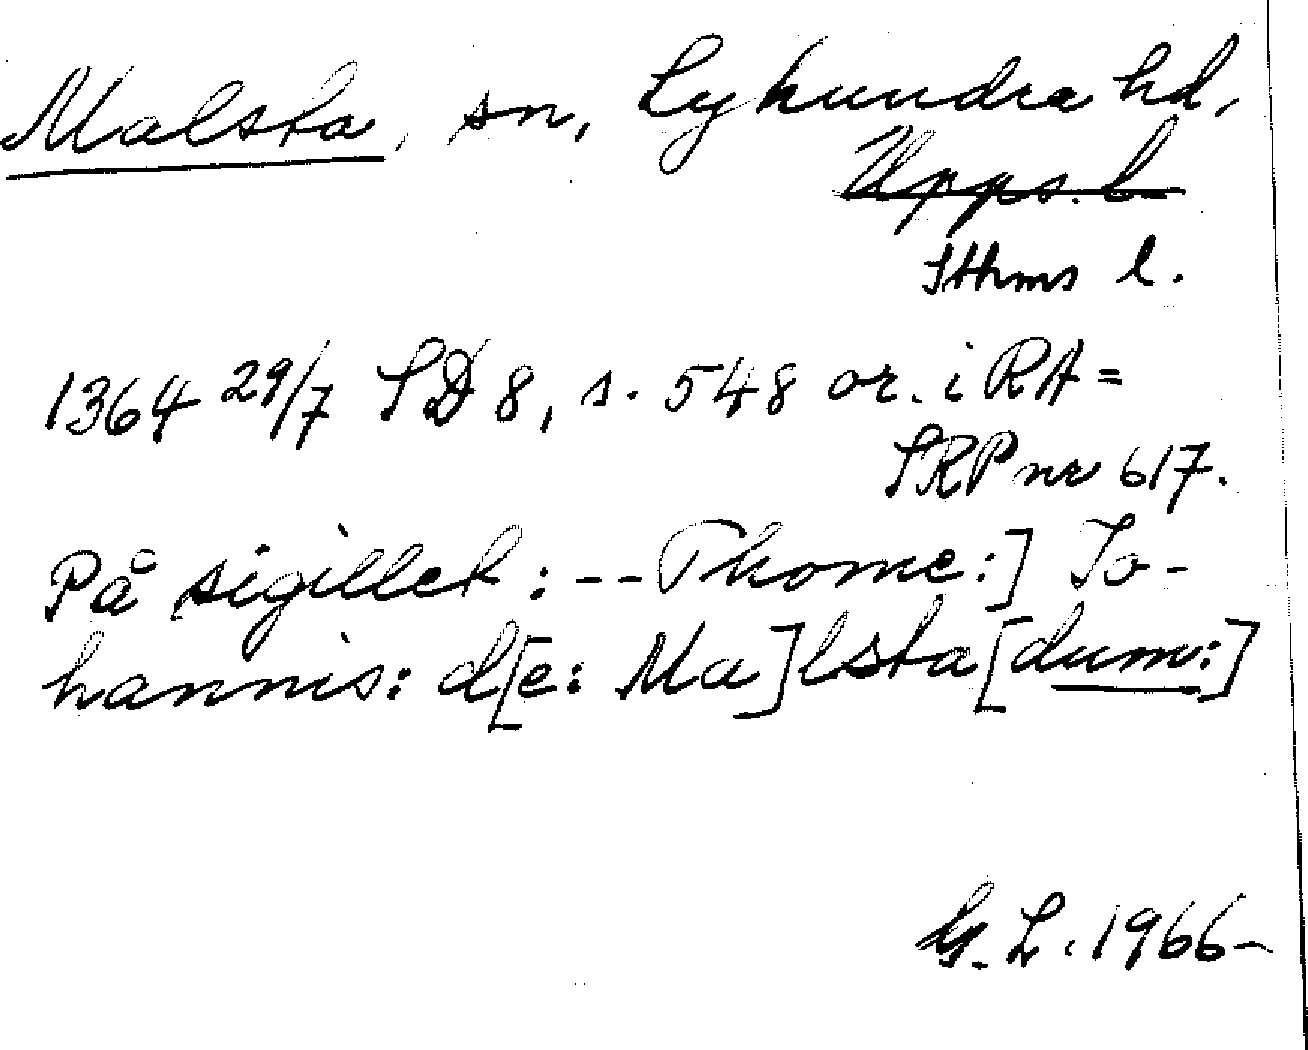 Malsta, sn, Lyhundra hd,
Upps. l.
Sthms l.
1364 29/7 SD 8, s. 548 or. i RA =
SRP nr 617.
På sigillet: -- Thome:] Jo-
hannis: d[e: Ma]lsta[dum:]
G. L. 1966-